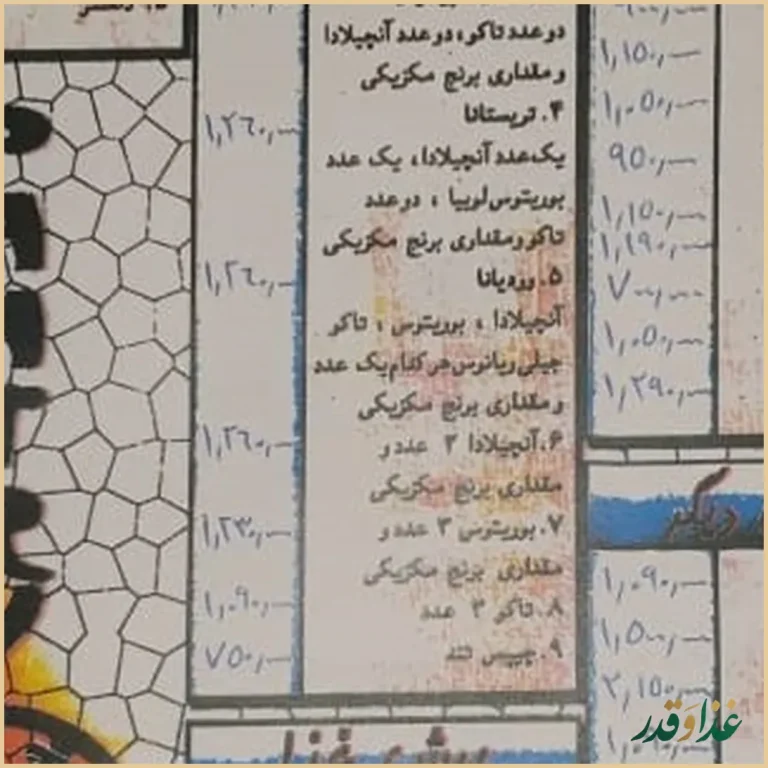 دو عدد تاکو، دو عدد آنچیلادا
و مقداری برنج مکزیکی
۴. تریستانا
۱,۲۶۰,—
یک عدد آنچیلادا، یک عدد
بوریتوس لوبیا ، دو عدد
تاکو و مقداری برنج مکزیکی
۵. وردیانا
۱,۲٦۰,—
آنچیلادا ، بوریتوس ، تاکو
چیلی ریانوس هر کدام یک عدد
و مقداری برنج مکزیکی
۶. آنچیلادا ۳ عدد و
۱,۲٦۰,—
مقداری برنج مکزیکی
۷. بوریتوس ۳ عدد و
۱,۲۳۰,—
مقداری برنج مکزیکی
۸. تاکو ۳ عدد
۱,۰۹۰,—
۹. چیپس تند
۷۵۰,—
۱,۱۵۰,—
۱,۰۵۰,—
۹۵۰,—
۱,۱۵۰,—
۱,۱۹۰,—
۷۰۰,—
۱,۰۵۰,—
۱,۲۹۰,—
دیگر
۱,۰۹۰,—
۱,۵۰۰,—
۲,۱۵۰,—
پیش غذا
غذا و قدر